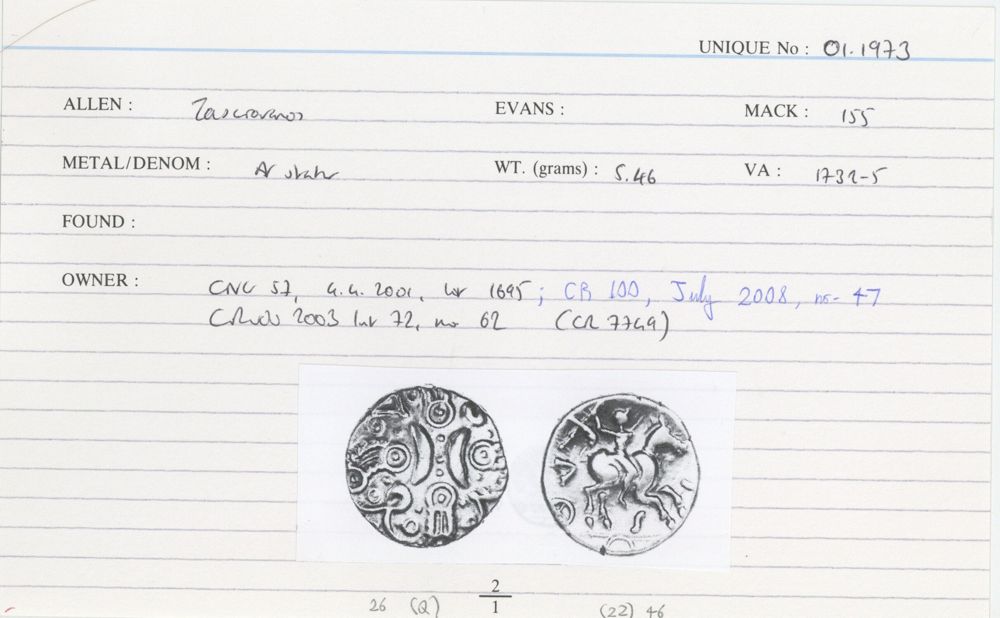 UNIQUE No : 01.1973
ALLEN : Tasciovanos EVANS : MACK : 155
METAL/DENOM : AV stater WT. (grams) : 5.46 VA : 1732-5
FOUND :
OWNER : CNG 57, 4.4.2001, lot 1695; CR 100, July 2008, no- 47
2003 72, no 62 (CR 7749)
2
26 (Q) 1 (22) 46